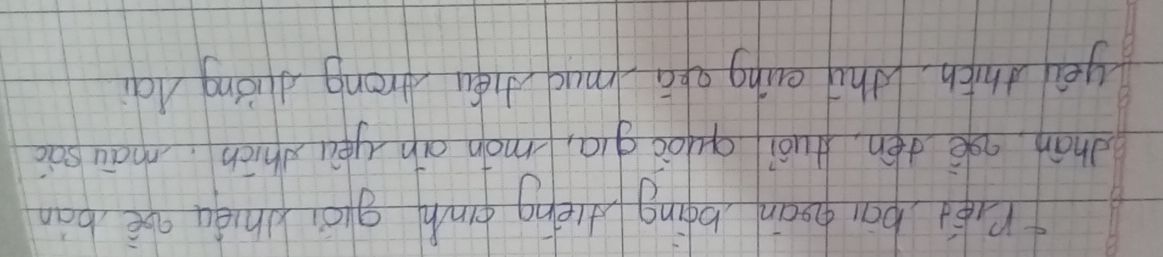 + Viết bài đoạn bằng tiếng anh giới thiệu về bản
thân về tên, tuổi, quốc gia, món ăn yêu thích, màu sắc
yêu thích, thú cưng và mục tiêu trong tương lai